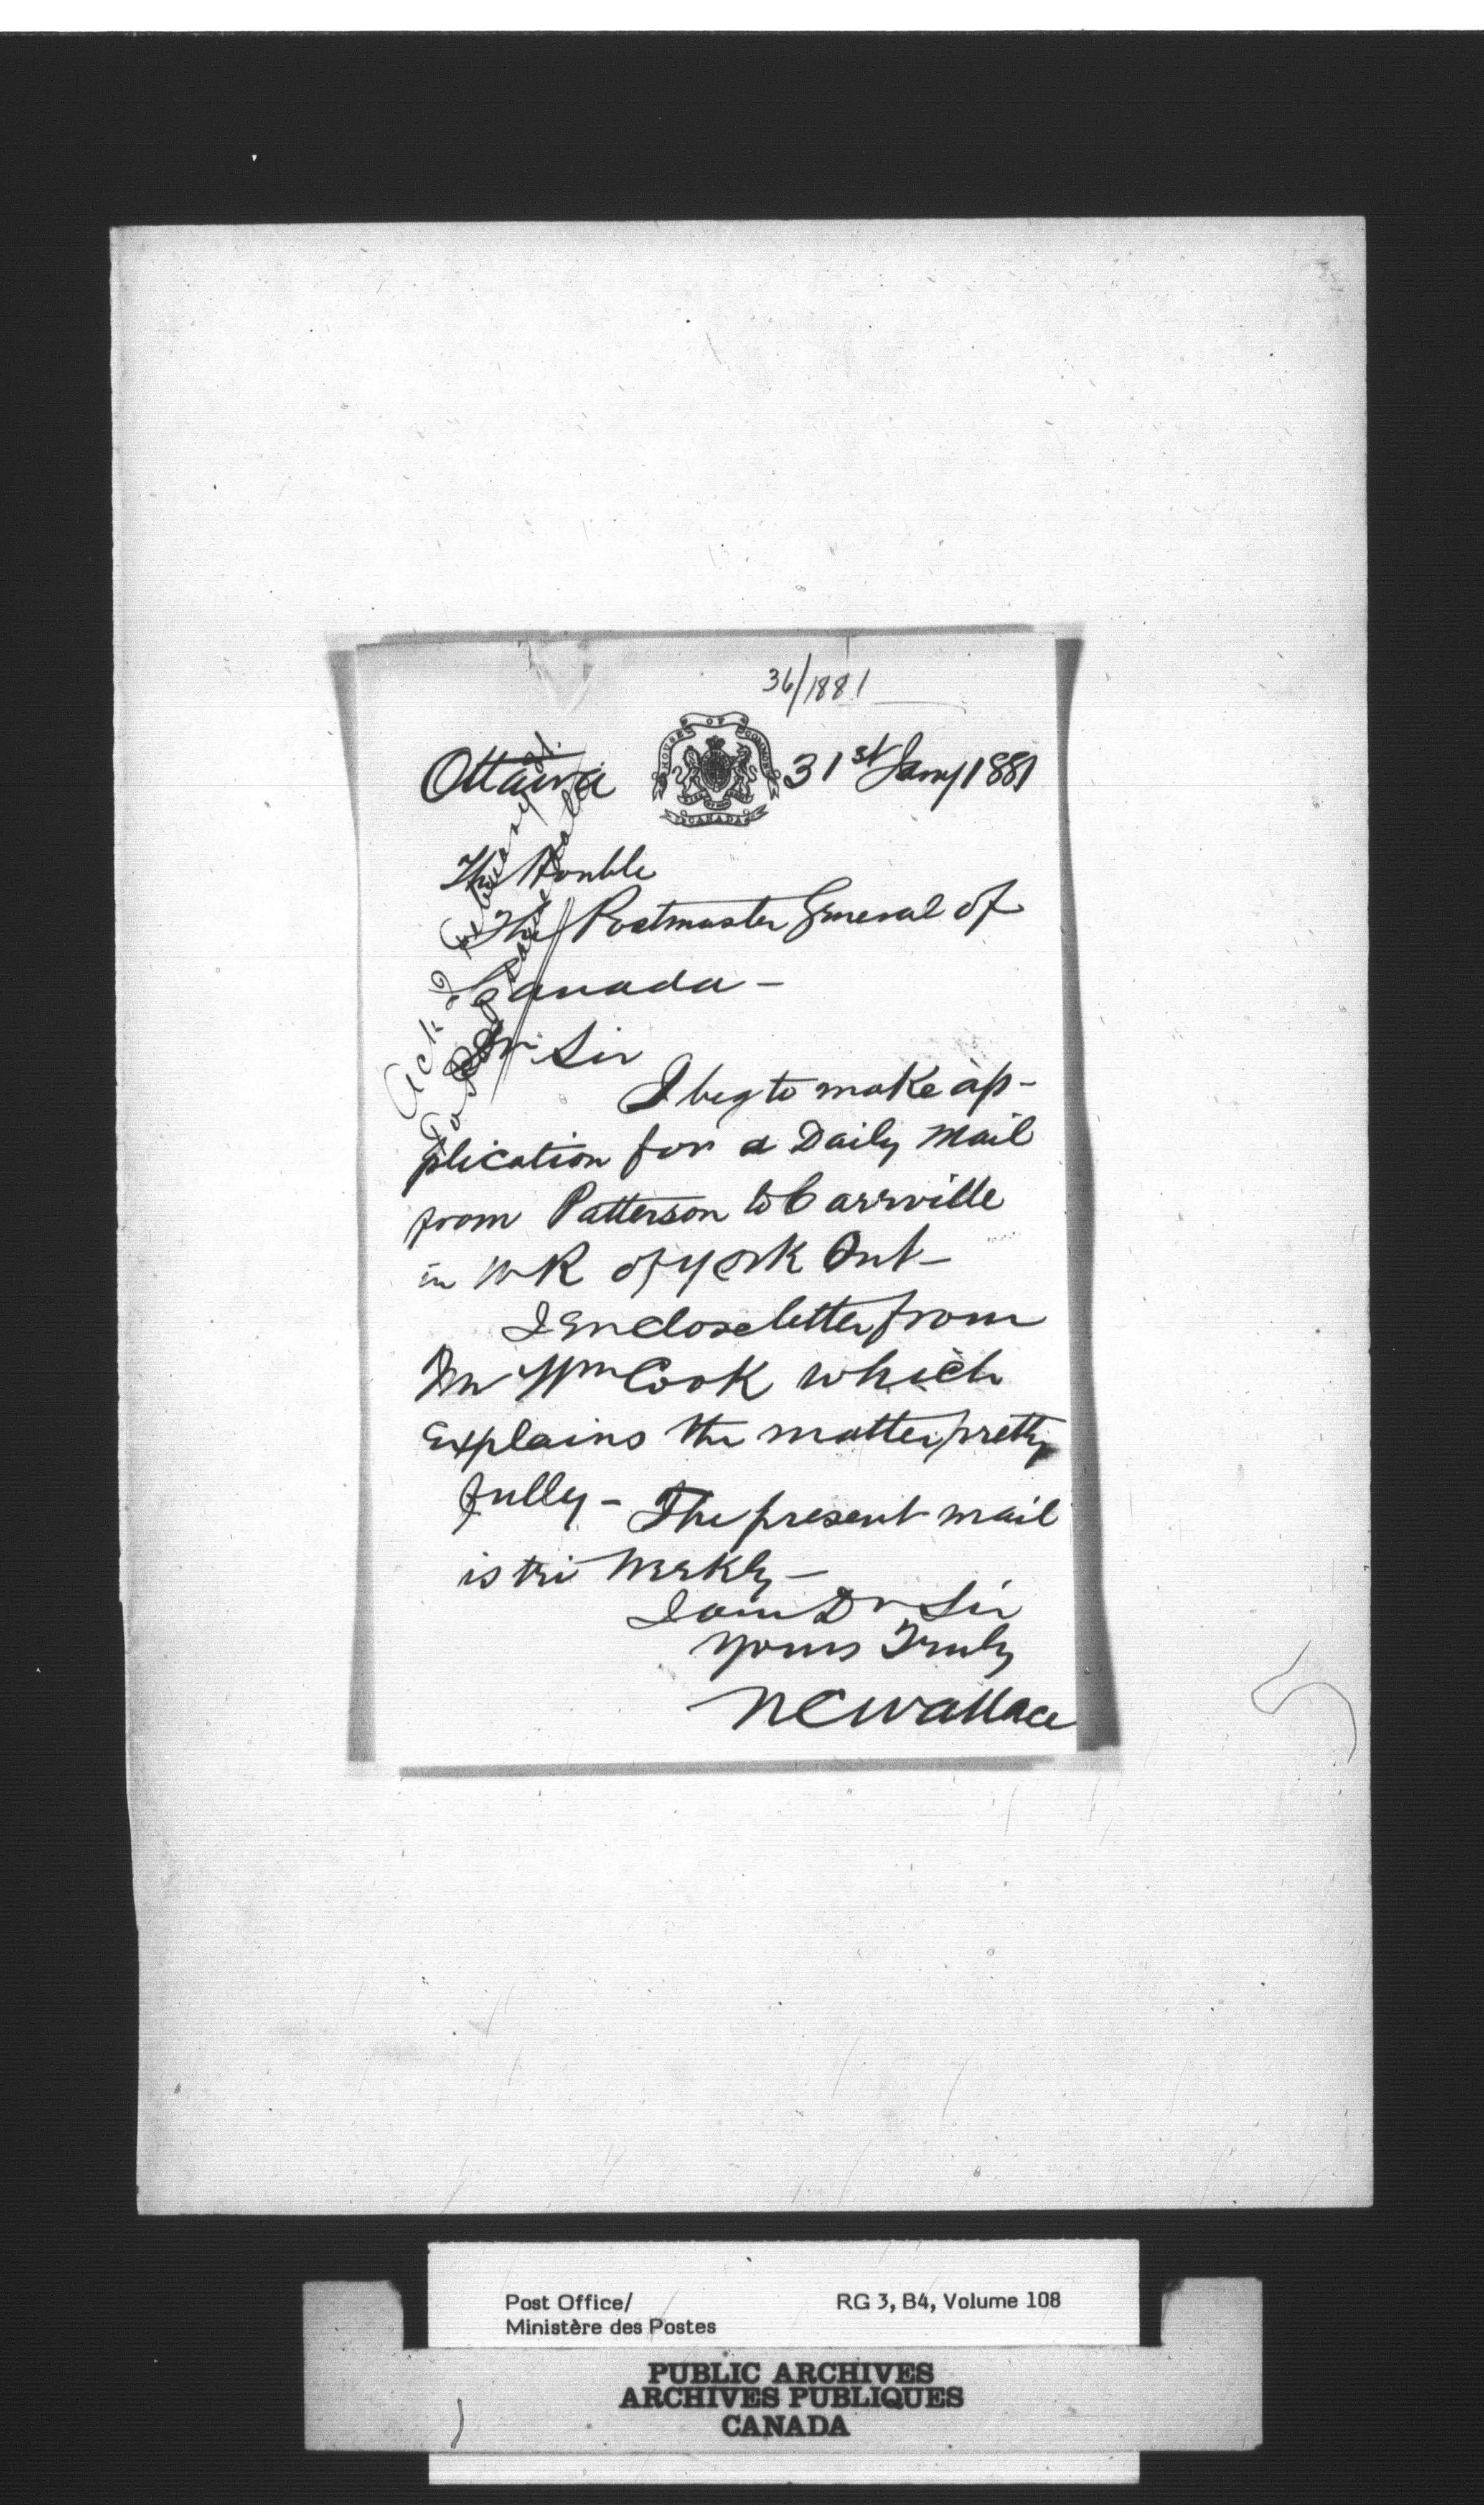 36/1881
HOUSE OF COMMONS
CANADA
Ottawa 31st Jany 1881
The Honble
The Postmaster General of
Canada -
Dr Sir
I beg to make ap-
plication for a Daily Mail
from Patterson to Carrville
in WR of York Ont -
I Enclose letter from
Mr Wm Cook which
Explains the matter pretty
fully - The present mail
is tri Weekly -
I am Dr Sir
Yours Truly
NC Wallace
Ack. 2 February 81.
Post Office/ RG 3, B4, Volume 108
Ministère des Postes
PUBLIC ARCHIVES
ARCHIVES PUBLIQUES
CANADA